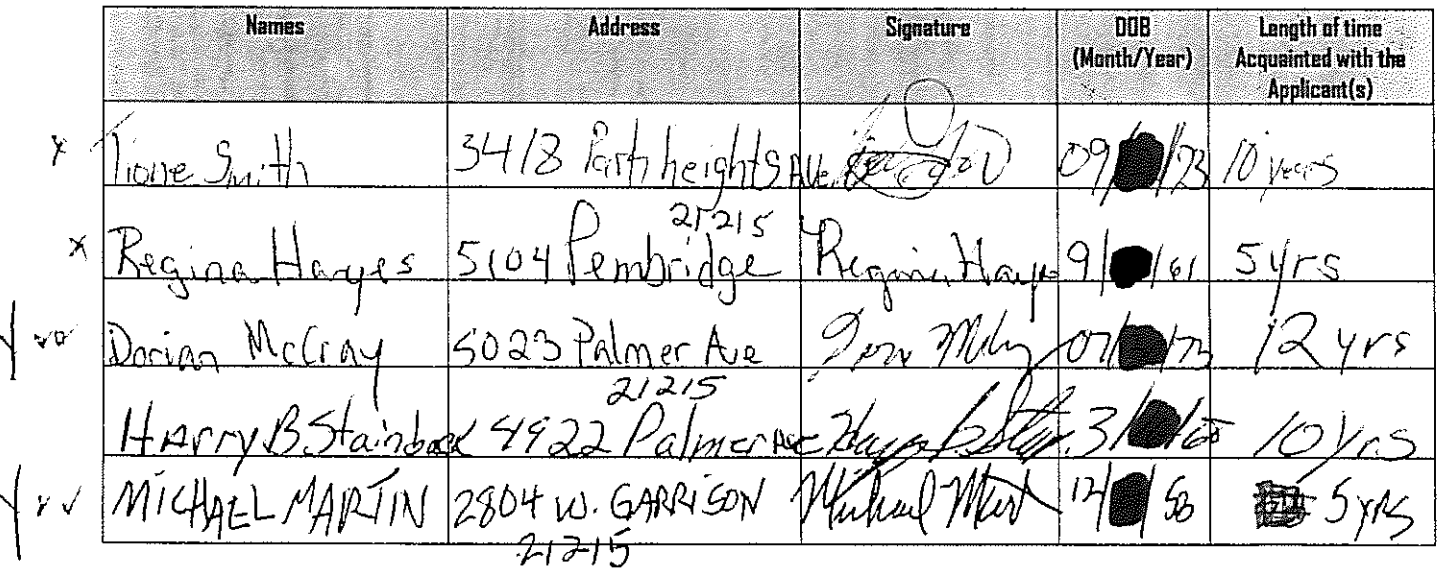 Names Address Signature DOB (Month/Year) Length of time Acquainted with the Applicant(s)
x Tione Smith 3418 Park heights Ave. 09/ /73 10 years
21215
x Regina Hayes 5104 Pembridge Regina Hayes 9/ /61 5 yrs
Dorian McCray 5023 Palmer Ave 07/ /73 12 yrs
21215
Harry B. Stainback 4922 Palmer Ave 3/ / 10 yrs
MICHAEL MARTIN 2804 W. GARRISON Michael Mart 12/ / 58 5 yrs
21215